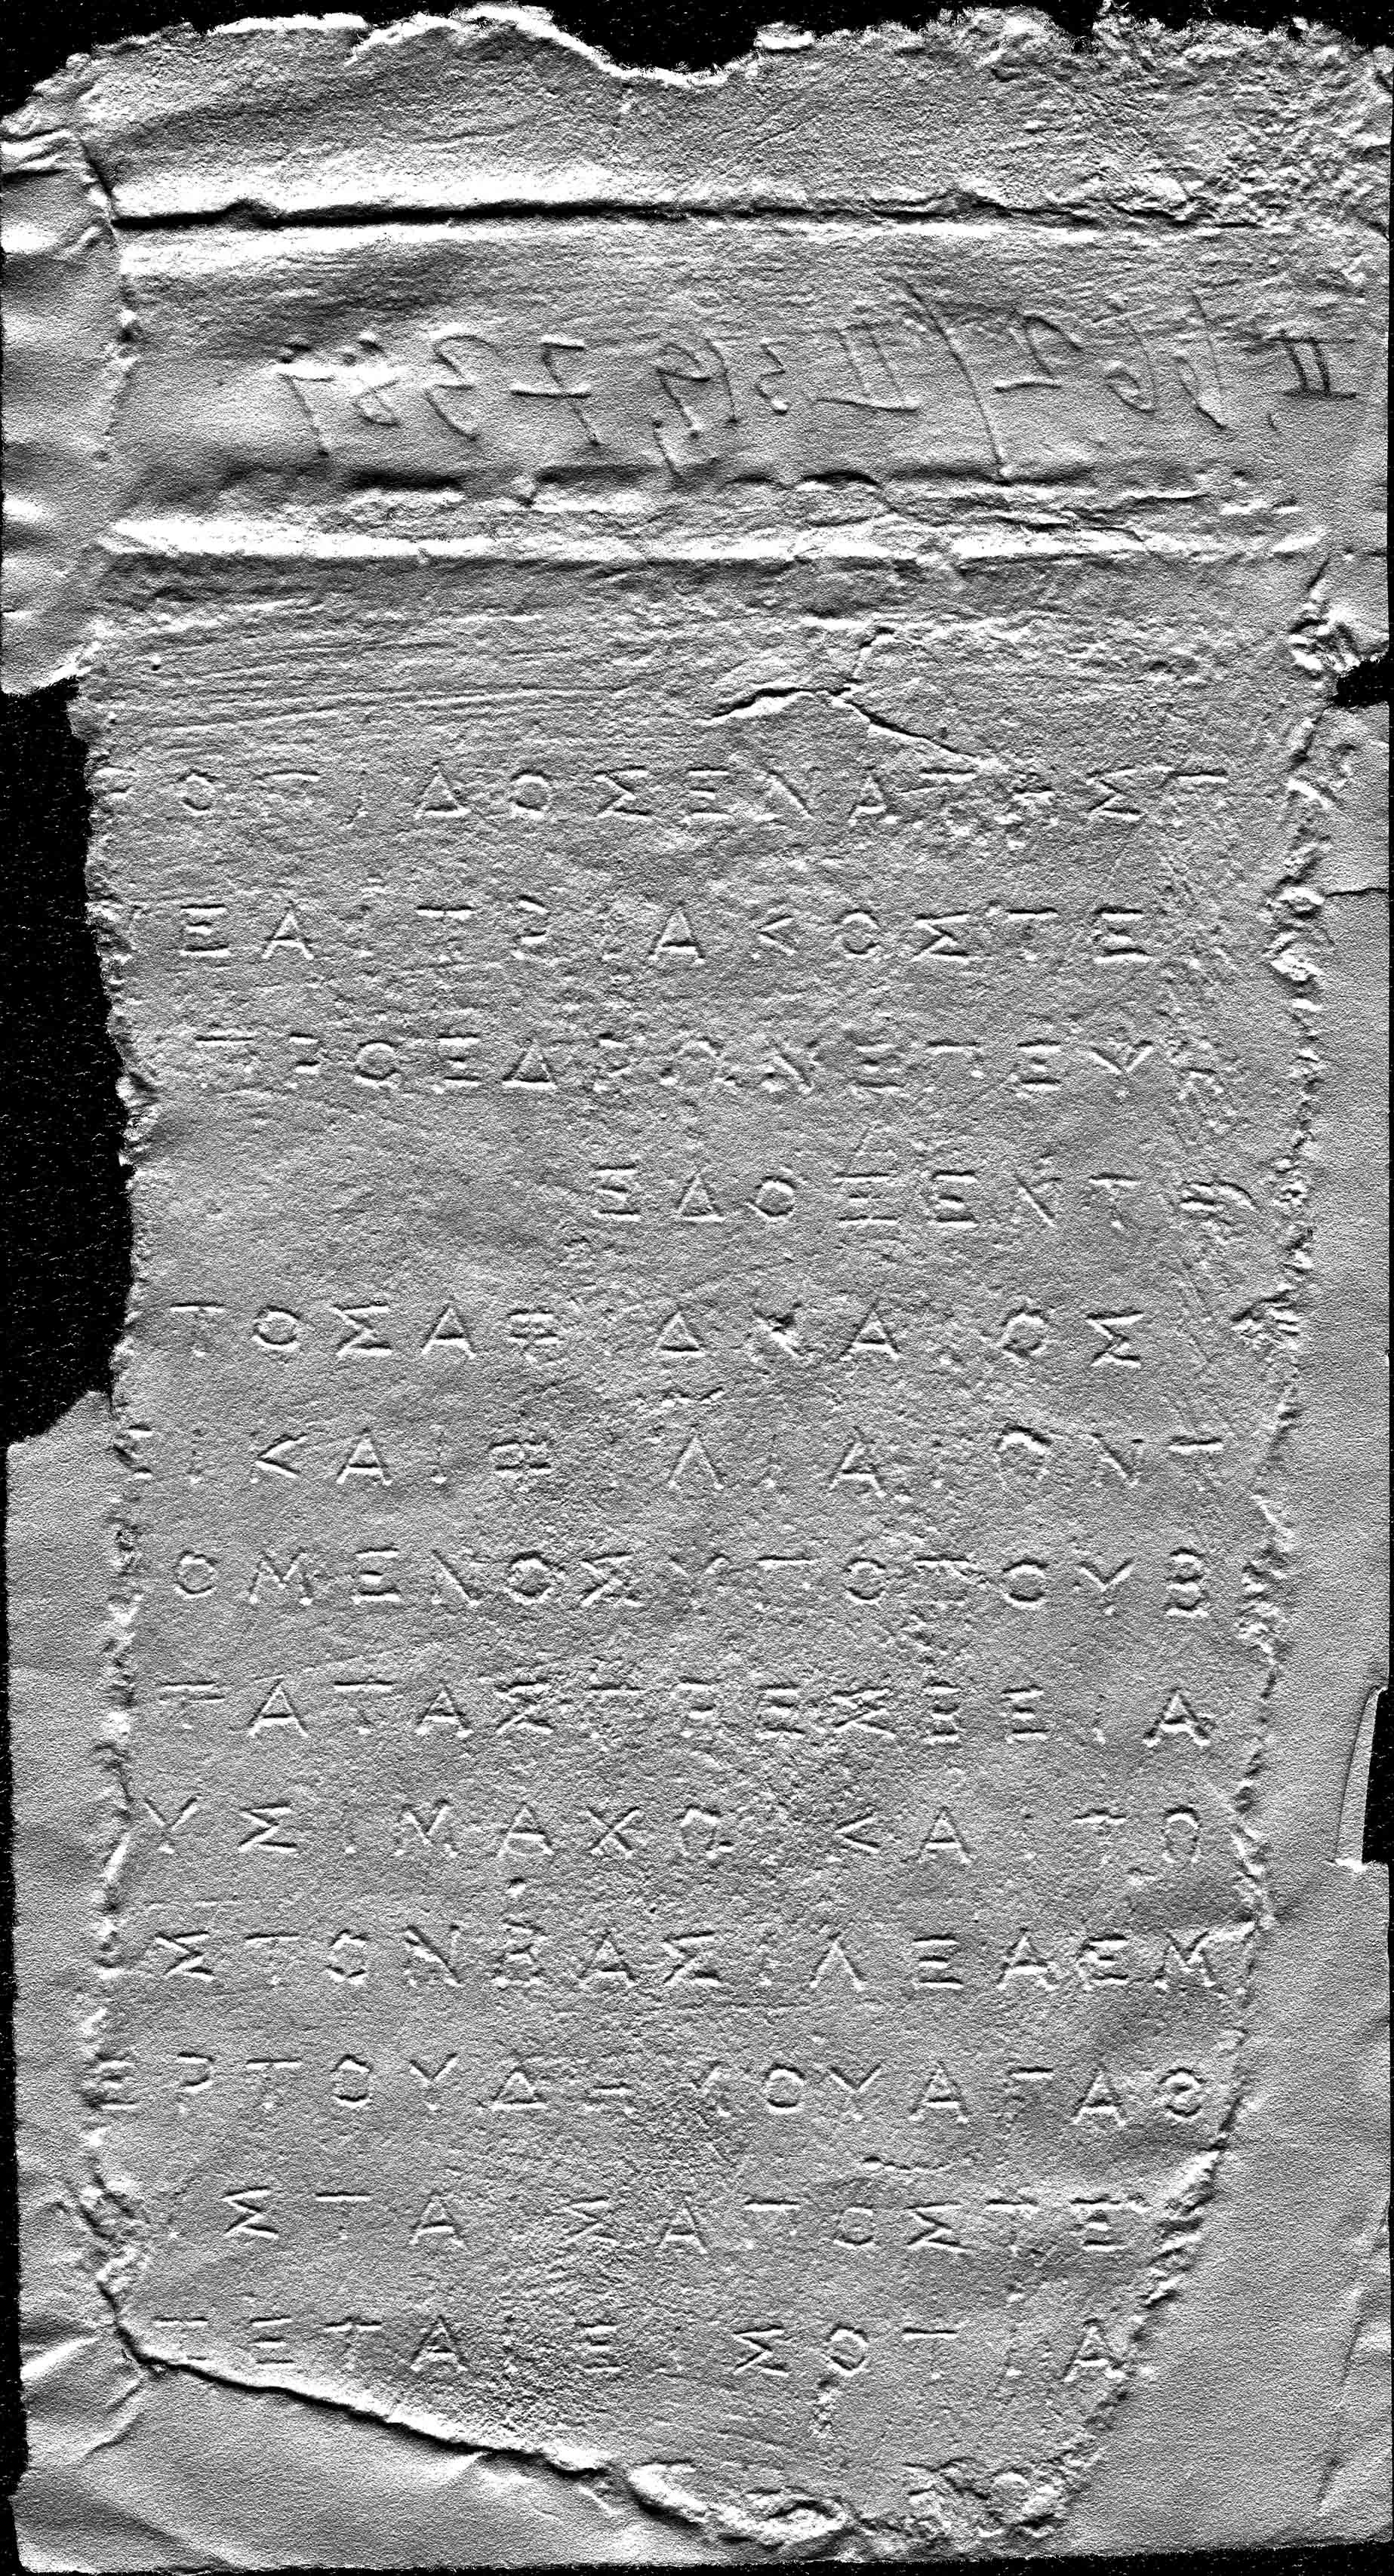 ΡΟΠΙΔΟΣΕΝΑΤΗΣΠ
ΕΑΙΤΡΙΑΚΟΣΤΕ
ΠΡΟΕΔΡΩΝΕΠΕΨ
ΕΔΟΞΕΝΤΩ
ΤΟΣΑΦΙΔΝΑΙΟΣ
ΙΚΑΙΦΙΛΙΑΙΩΝΤ
ΟΜΕΝΟΣΥΠΟΤΟΥΒ
ΤΑΤΑΣΠΡΕΣΒΕΙΑ
ΥΣΙΜΑΧΩΙΚΑΙΤΟ
ΣΤΟΝΒΑΣΙΛΕΑΕΜ
ΕΡΤΟΥΔΗΜΟΥΑΓΑΘ
ΣΤΑΙΣΑΠΟΣΤΕ
ΤΕΤΑΙΕΙΣΟΤΙΑ